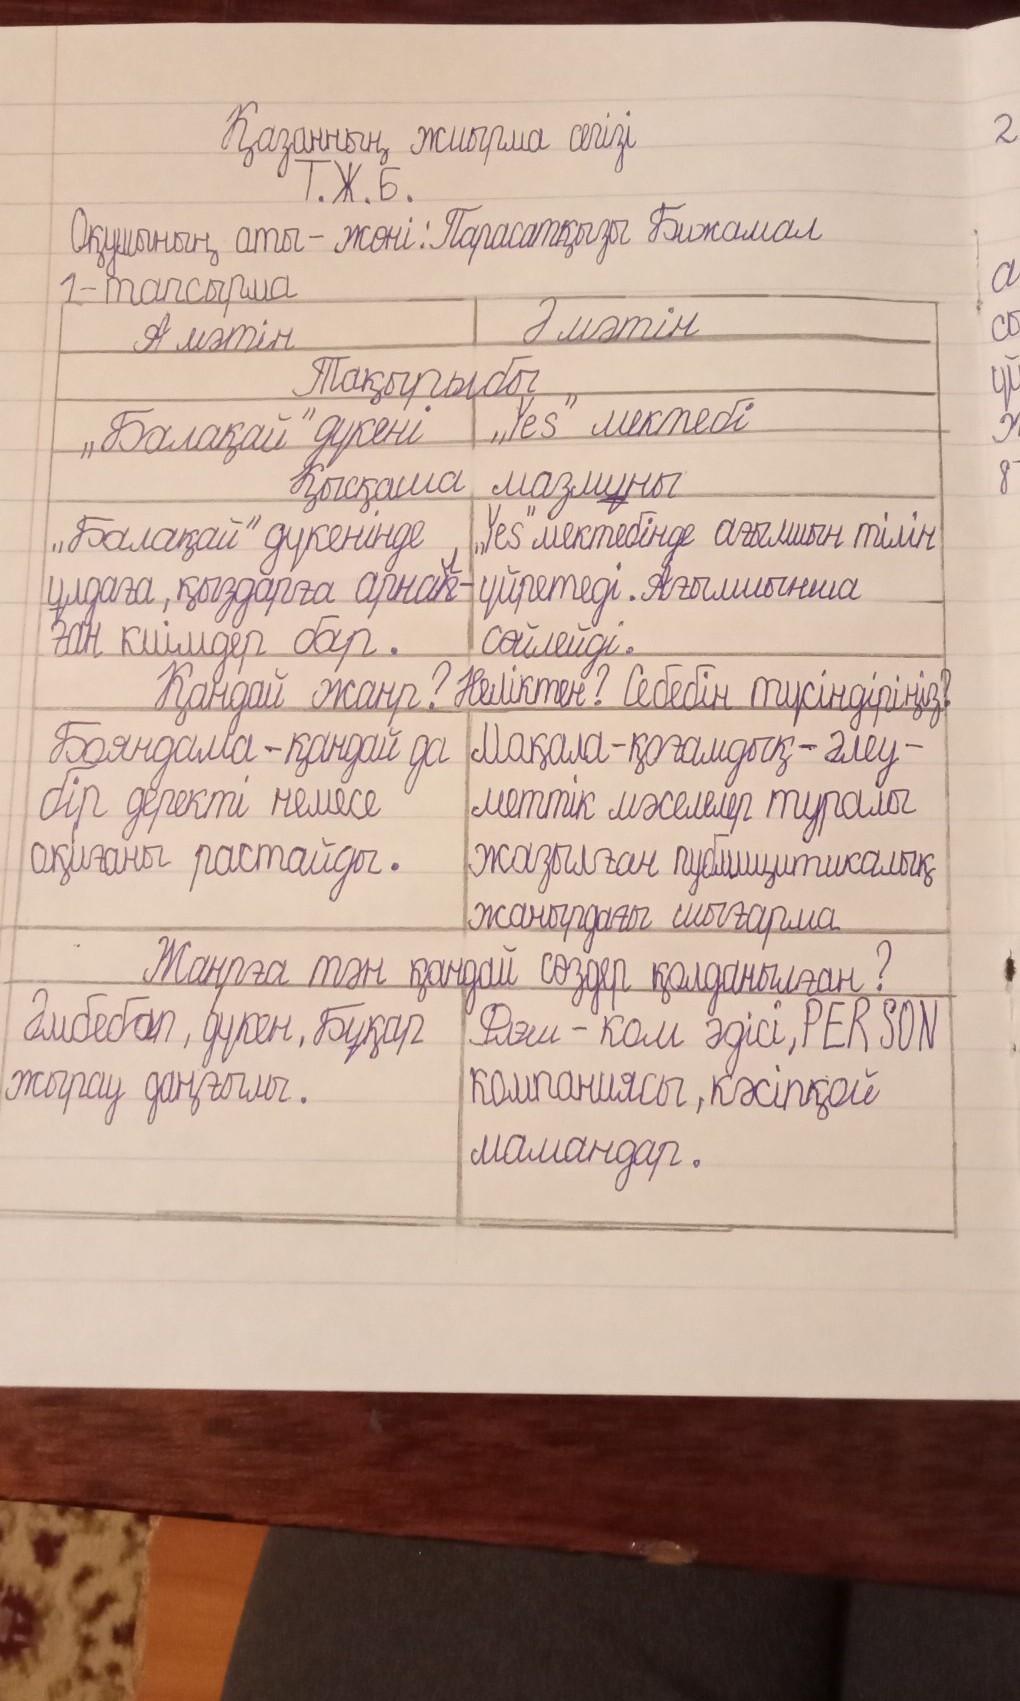 Қазанның жиырма сегізі
Т.Ж.Б.
Оқушының аты-жөні: Парасатқызы Бижамал
1-тапсырма
А мәтін Ә мәтін
Тақырыбы
„Балақай" дүкені „Yes" мектебі
Қысқаша мазмұны
„Балақай" дүкенінде „Yes" мектебінде ағылшын тілін
ұлдаға, қыздарға арнай- үйретеді. Ағылшынша
ған киімдер бар. сөйлейді.
Қандай жанр? Неліктен? Себебін түсіндіріңіз?
Бояндама - қандай да Мақала - қоғамдық - әлеу-
бір деректі немесе меттік мәселелер туралы
оқиғаны растайды. жазылған публицитикалық
жанырдағы шығарма
Жанрға тән қандай сөздер қолданылған?
Әмбебап, дүкен, Бұқар Флэш - ком әдісі, PERSON
жырау даңғылы. компаниясы, кәсіпқой
мамандар.
2